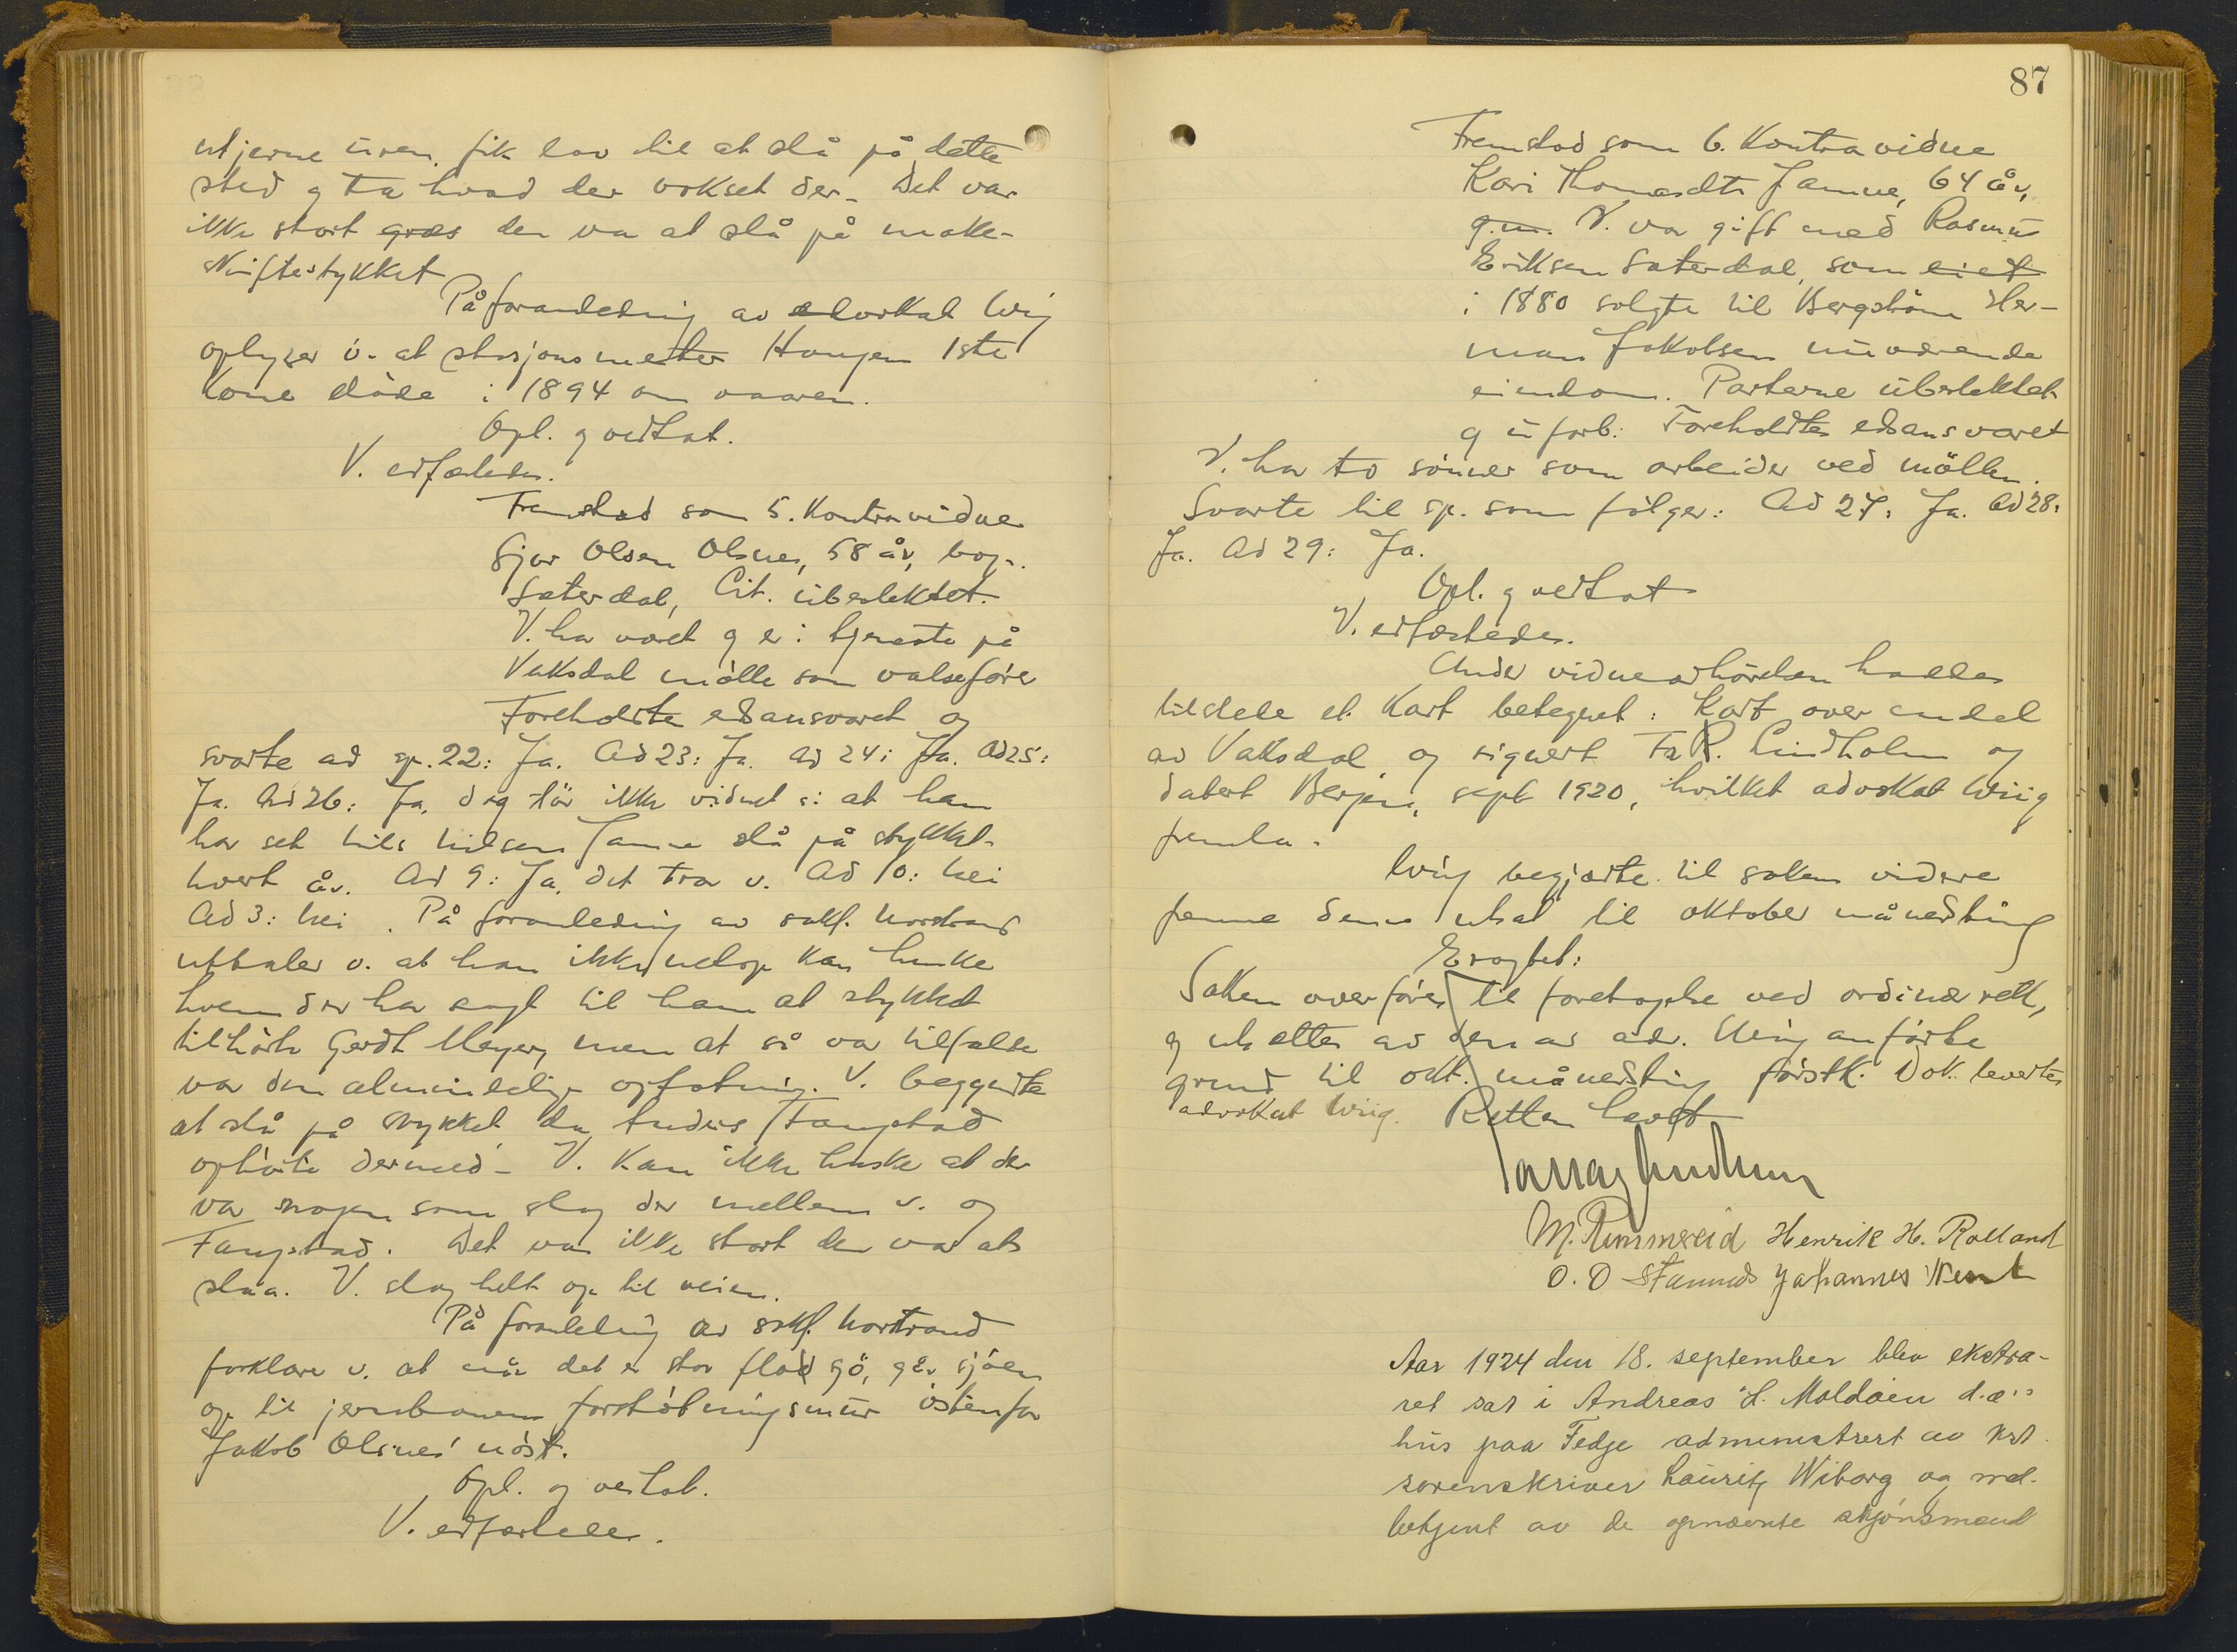 utjerne uren, fik lov til at slå på dette
sted g ta hvad der vokset der. Det var
ikke stort græs der var at slå på make-
skiftestykket
På foranledning av advokat Wiig
oplyser v. at stasjonsmester Haugen 1ste
kone døde i 1894 om vaaren.
Opl. g vedtat.
V. edfæstedes.
Fremstod som 5. Kontravidne
Sjur Olsen Olsnes, 58 år, bop.
Sæterdal, Cit. übeslektet.
V. har været g er i tjeneste på
Vaksdal mølle som valsefører
Foreholdte edsansvaret og
svarte ad sp. 22: Ja. Ad 23: Ja. Ad 24: Ja. Ad 25:
Ja. Ad 26: Ja, dog tør ikke vidnet si at han
har set Nils Nilsen Jamne slå på stykket
hvert år. Ad 9: Ja, det tror v. Ad 10: Nei
Ad 3: Nei. På foranledning av sakf. Nordtrand
uttaler v. at han ikke netop kan huske
hvem der har sagt til ham at stykket
tilhørte Gerdt Meyer, men at så var tilfælde
var den almindelige opfatning. V. begyndte
at slå på stykket da Anders Fangstad
ophørte dermed. V. kan ikke huske at der
var nogen som slog der mellem v. og
Fangstad. Det var ikke stort der var at
slaa. V. slog helt op til veien.
På foranledning av sakf. Nortrand
forklare v. at når det er stor flod sjø, går sjøen
op til jernbanens forstøtningsmür østenfor
Jakob Olsnes' nøst.
Opl. og vedtat.
V. edfæstedes.
87
Fremstod som 6. Kontravidne
Kari Thomasdtr Jamne, 64 år,
g.m. V. var gift med Rasmus
Eriksen Sæterdal, som eiet
i 1880 solgte til Bergstøm Her-
man Jakobsen nüværende
eiendom. Parterne übeslektet
g üforb. Foreholdtes edsansvaret
V. har to sønner som arbeider ved møllen.
Svarte til sp. som følger: Ad 27: Ja. Ad 28:
Ja. Ad 29: Ja.
Opl. g vedtat
V. edfæstedes.
Under vidneavhørelsen havdes
tilstede et Kart betegnet: Kart over endel
av Vaksdal og signert Fr. R. Lindholm og
datert Bergen, sept 1920, hvilket advokat Wiig
fremla.
Wiig begjærte til sakens videre
fremme denne utsat til oktober månedsting
Eragtet:
Saken overføres til foretagelse ved ordinær rett,
g utsættes av den av adv. Wiig anførte
grund til okt. månedsting førstk. Dok. leverte
advokat Wiig. Retten hævet
M. Rimmereid Henrik H. Rolland
O. O Stamnes Johannes
Aar 1924 den 18. september blev ekstra-
ret sat i Andreas H. Moldøen d.æ.'s
hüs paa Fedje administrert av kst.
sorenskriver Lauritz Wiborg og med-
betjent av de opnævnte skjønsmænd